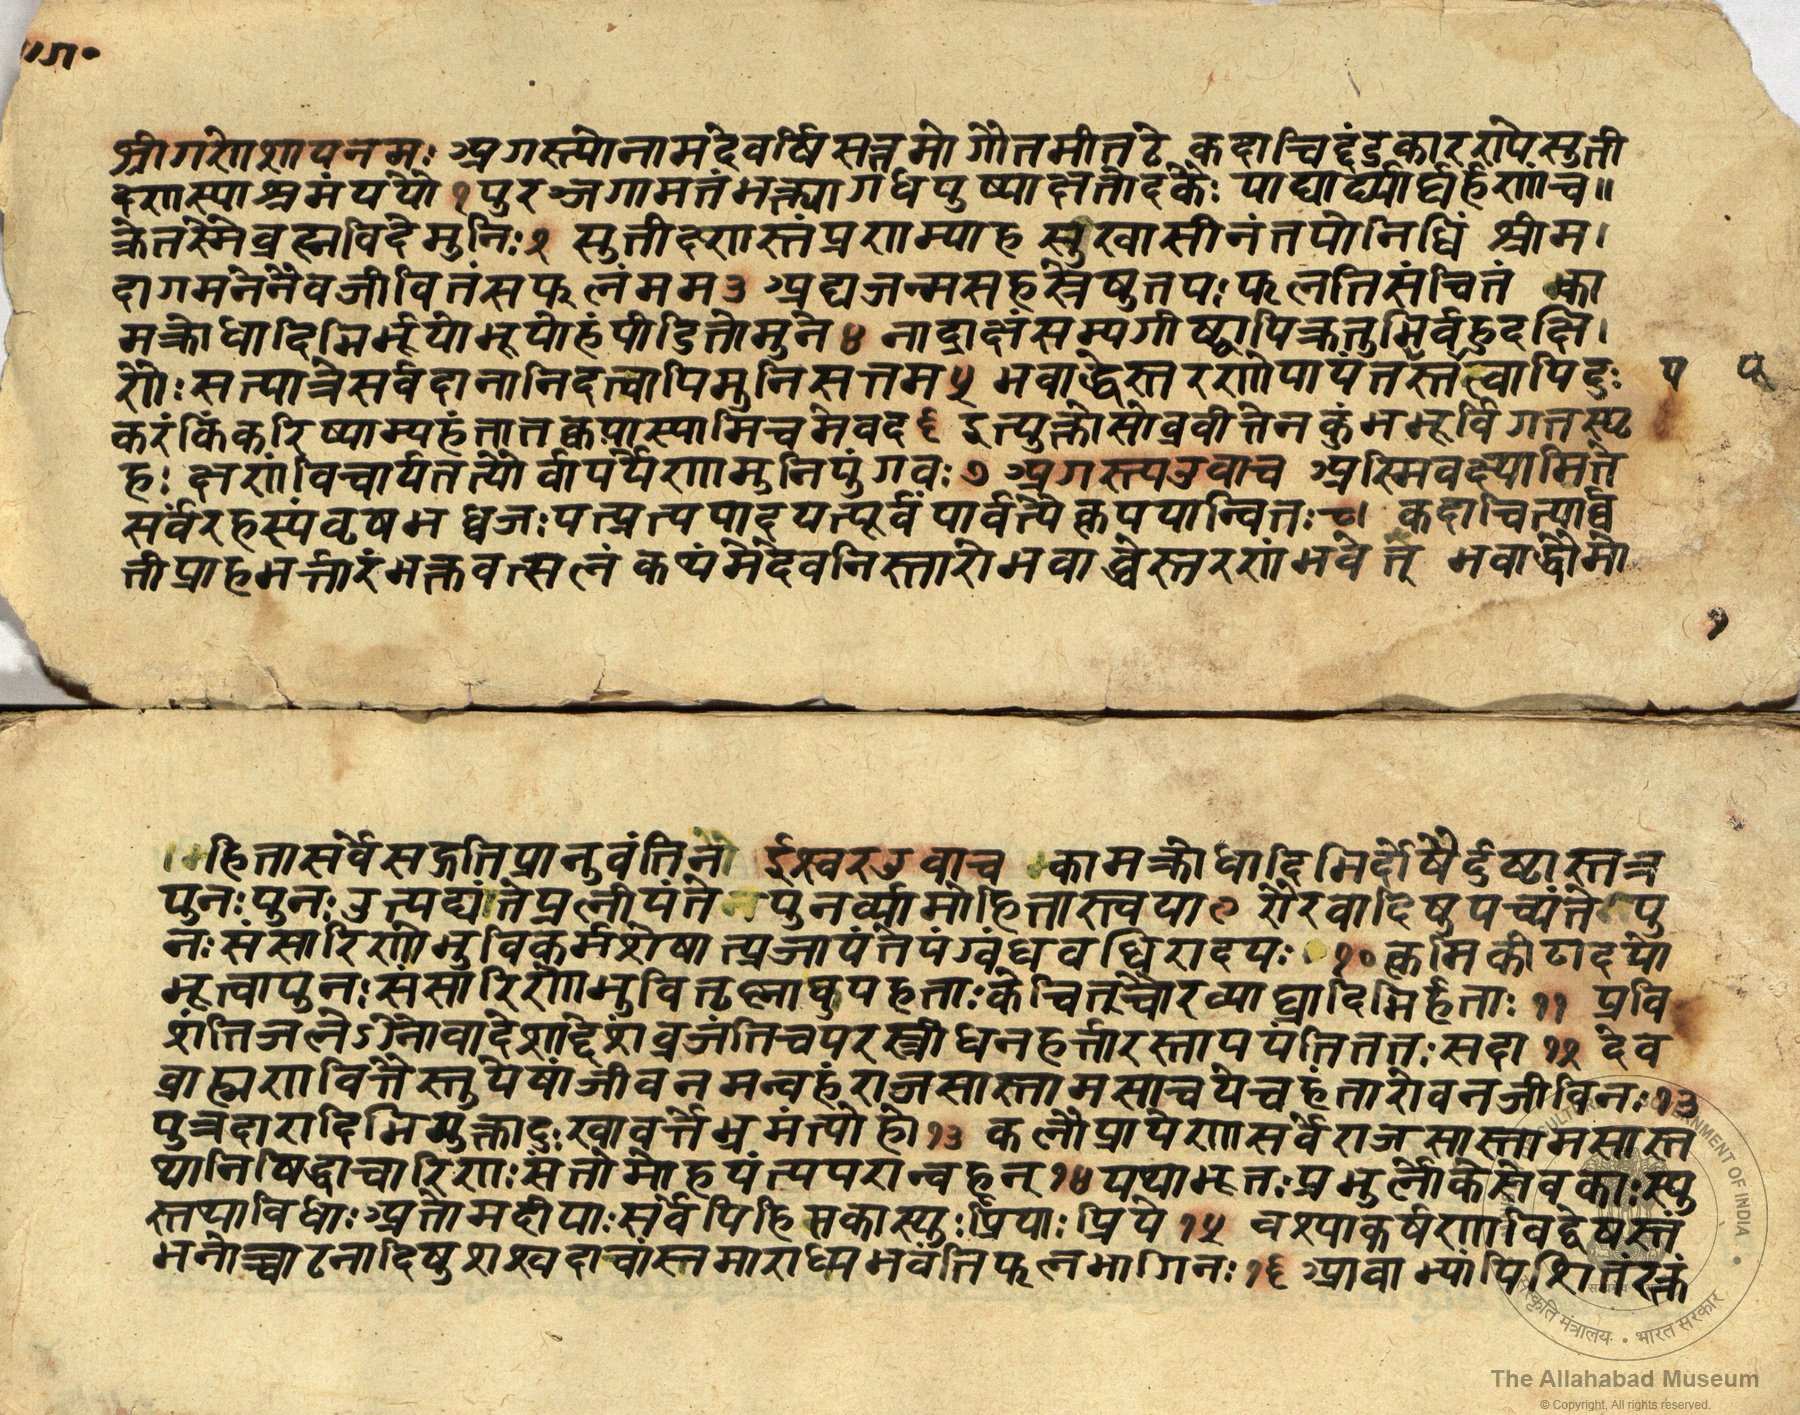 ॥ग॰
श्रीगणेशायनमः अगस्त्योनामदेवर्षिसत्तमोगौतमीतटे कदाचिद्दंडकारण्येसुती
क्ष्णस्याश्रमंययौ १ पुरञ्जगामतंभक्त्यागंधपुष्पाक्षतोदकैः पाद्यार्घ्यार्घार्हणंच॥
क्रेतस्मैब्रह्मविदेमुनिः २ सुतीक्ष्णस्तंप्रणम्याह सुखासीनंतपोनिधिं श्रीम।
दागमनेनैवजीवितंसफलंमम ३ अद्यजन्मसहस्रेषुतपःफलतिसंचितं का
मक्रोधादिभिर्भूयोभूयोहंपीडितोमुने ४ नाद्राक्षंसम्यगीष्ट्वापिक्रतुभिर्बहुदक्षि।
णैः सत्पात्रेसर्वदानानिदत्वापिमुनिसत्तम ५ भवाब्धेस्तरणोपायंतप्तस्तप्त्वापिदुः
करंकिंकरिष्याम्यहंतातक्वयास्यामित्वमेवद ६ इत्युक्तोसोब्रवीत्तेनकुंभभूर्विगतस्पृ
हः क्षणंविचार्यतत्त्योर्वापर्यैणमुनिपुंगवः ७ अगस्त्यउवाच अस्मिवक्ष्यामिते
सर्वरहस्यंवृषभध्वजः यत्प्रत्यपादयत्पूर्वंपार्वत्यैकृपयान्वितः ८। कदाचित्पार्व
तीप्राहभर्त्तारंभक्तवत्सलं कथंमेदेवनिस्तारोभवाब्धेस्तरणंभवेत् भवाब्धौमो
१
।महितासर्वेसद्गतिप्रानुवंतिनो ईश्वरउवाच कामक्रोधादिभिर्दोषैर्दुष्टास्तत्र
पुनःपुनः उत्पद्यंतेप्रलीयंतेनपुनर्व्यामोहितास्त्वया ९ रौरवादिषुपच्यंतेपु
नःसंसारिणोभुविकर्मशेषात्प्रजायंतेपंग्वंधबधिरादयः १० कृमिकीटादयो
भूत्वापुनःसंसारिणोभुवितृष्णाक्षुपहताःकेचित्चौरव्याघ्रादिभिर्हताः ११ प्रवि
शंतिजलेऽग्नौवादेशाद्देशंव्रजंतिचपरस्त्रीधनहर्त्तारस्तापयंतिततःसदा १२ देव
ब्राह्मणवित्तैस्तुयेषांजीवनमन्वहंराजसास्तामसाचयेचहंतारोवनजीविनः १३
पुत्रदारादिभिर्युक्तादुःखावर्त्तेभ्रमंत्यहो १३ कलौप्रायेणसर्वेराजसास्तामसास्त
थानिषिद्धाचारिणःसंतोमोहयंत्यपरान्बहून् १४ यथाभूतःप्रभुर्लोकेसेवकाःस्यु
स्तथाविधाः अतोमदीयाःसर्वेपिहिंसकास्युःप्रियाःप्रिये १५ वश्याकर्षणविद्वेषस्तं
भनोच्चाटनादिषुशश्वदाचांस्तमाराध्यभवंतिफलभागिनः १६ आवाभ्यांपिशितंरक्तं
The Allahabad Museum
© Copyright, All rights reserved.